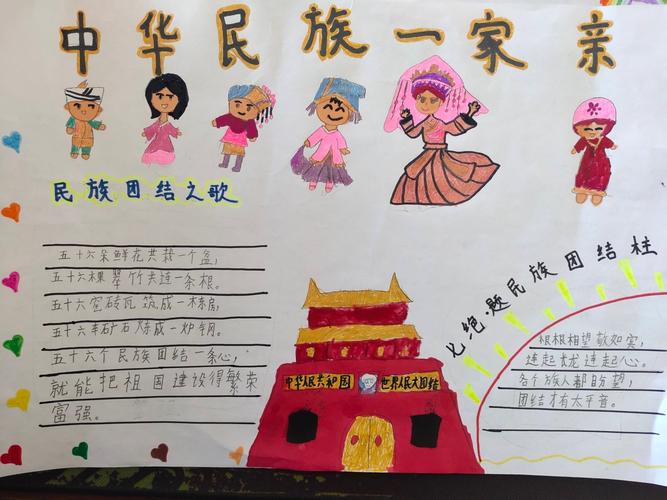 中华民族一家亲
民族团结之歌
五十六朵鲜花共栽一个盆,
五十六棵翠竹共连一条根。
五十六窑砖瓦筑成一栋房,
五十六车矿石炼成一炉钢。
五十六个民族团结一条心,
就能把祖国建设得繁荣
富强。
中华人民共和国
世界人民大团结
七绝.题民族团结柱
根根相望敬如宾,
连起龙连起心。
各个族人都盼望,
团结才有太平音。